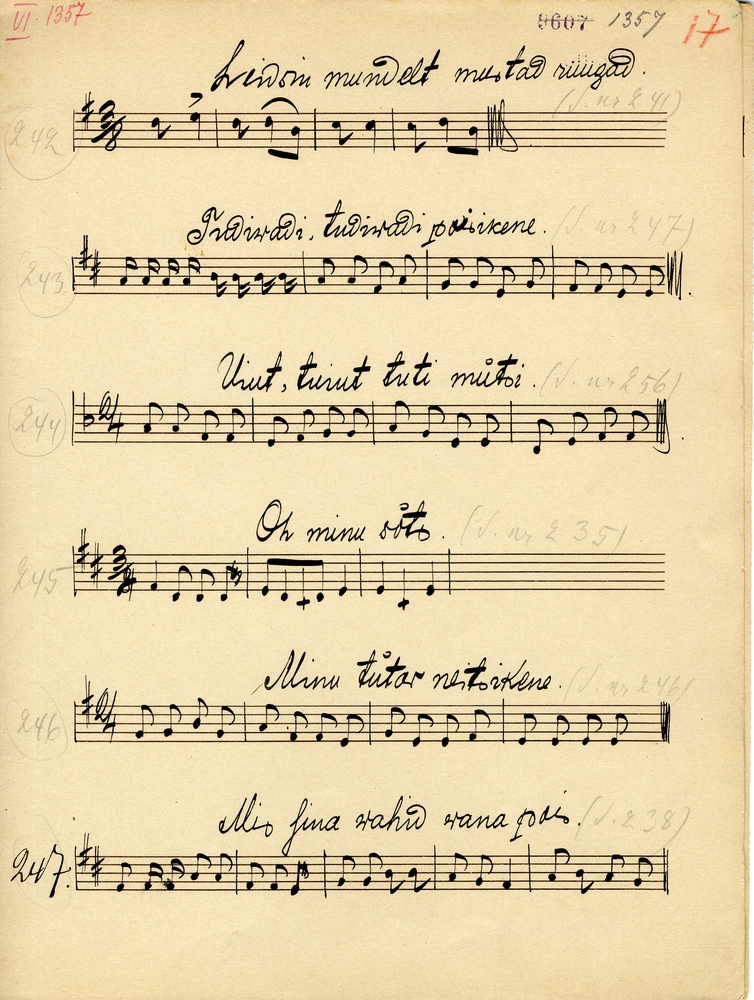 VI. 1357
9607 1357 17
Leidsin mundelt mustad ruugad.
(S. nr 241)
242 3/8
Tudiwadi, tudiwadi poisikene. (S. nr 247)
243
Uiut, tuiut tuti mütsi. (S. nr 256)
244 2/4
Oh minu sõts. (S. nr 235)
245 3/8
Minu tütar neitsikene. (S. nr 246)
246 2/4
Mis sina wahid wana pois. (S. 238)
247.